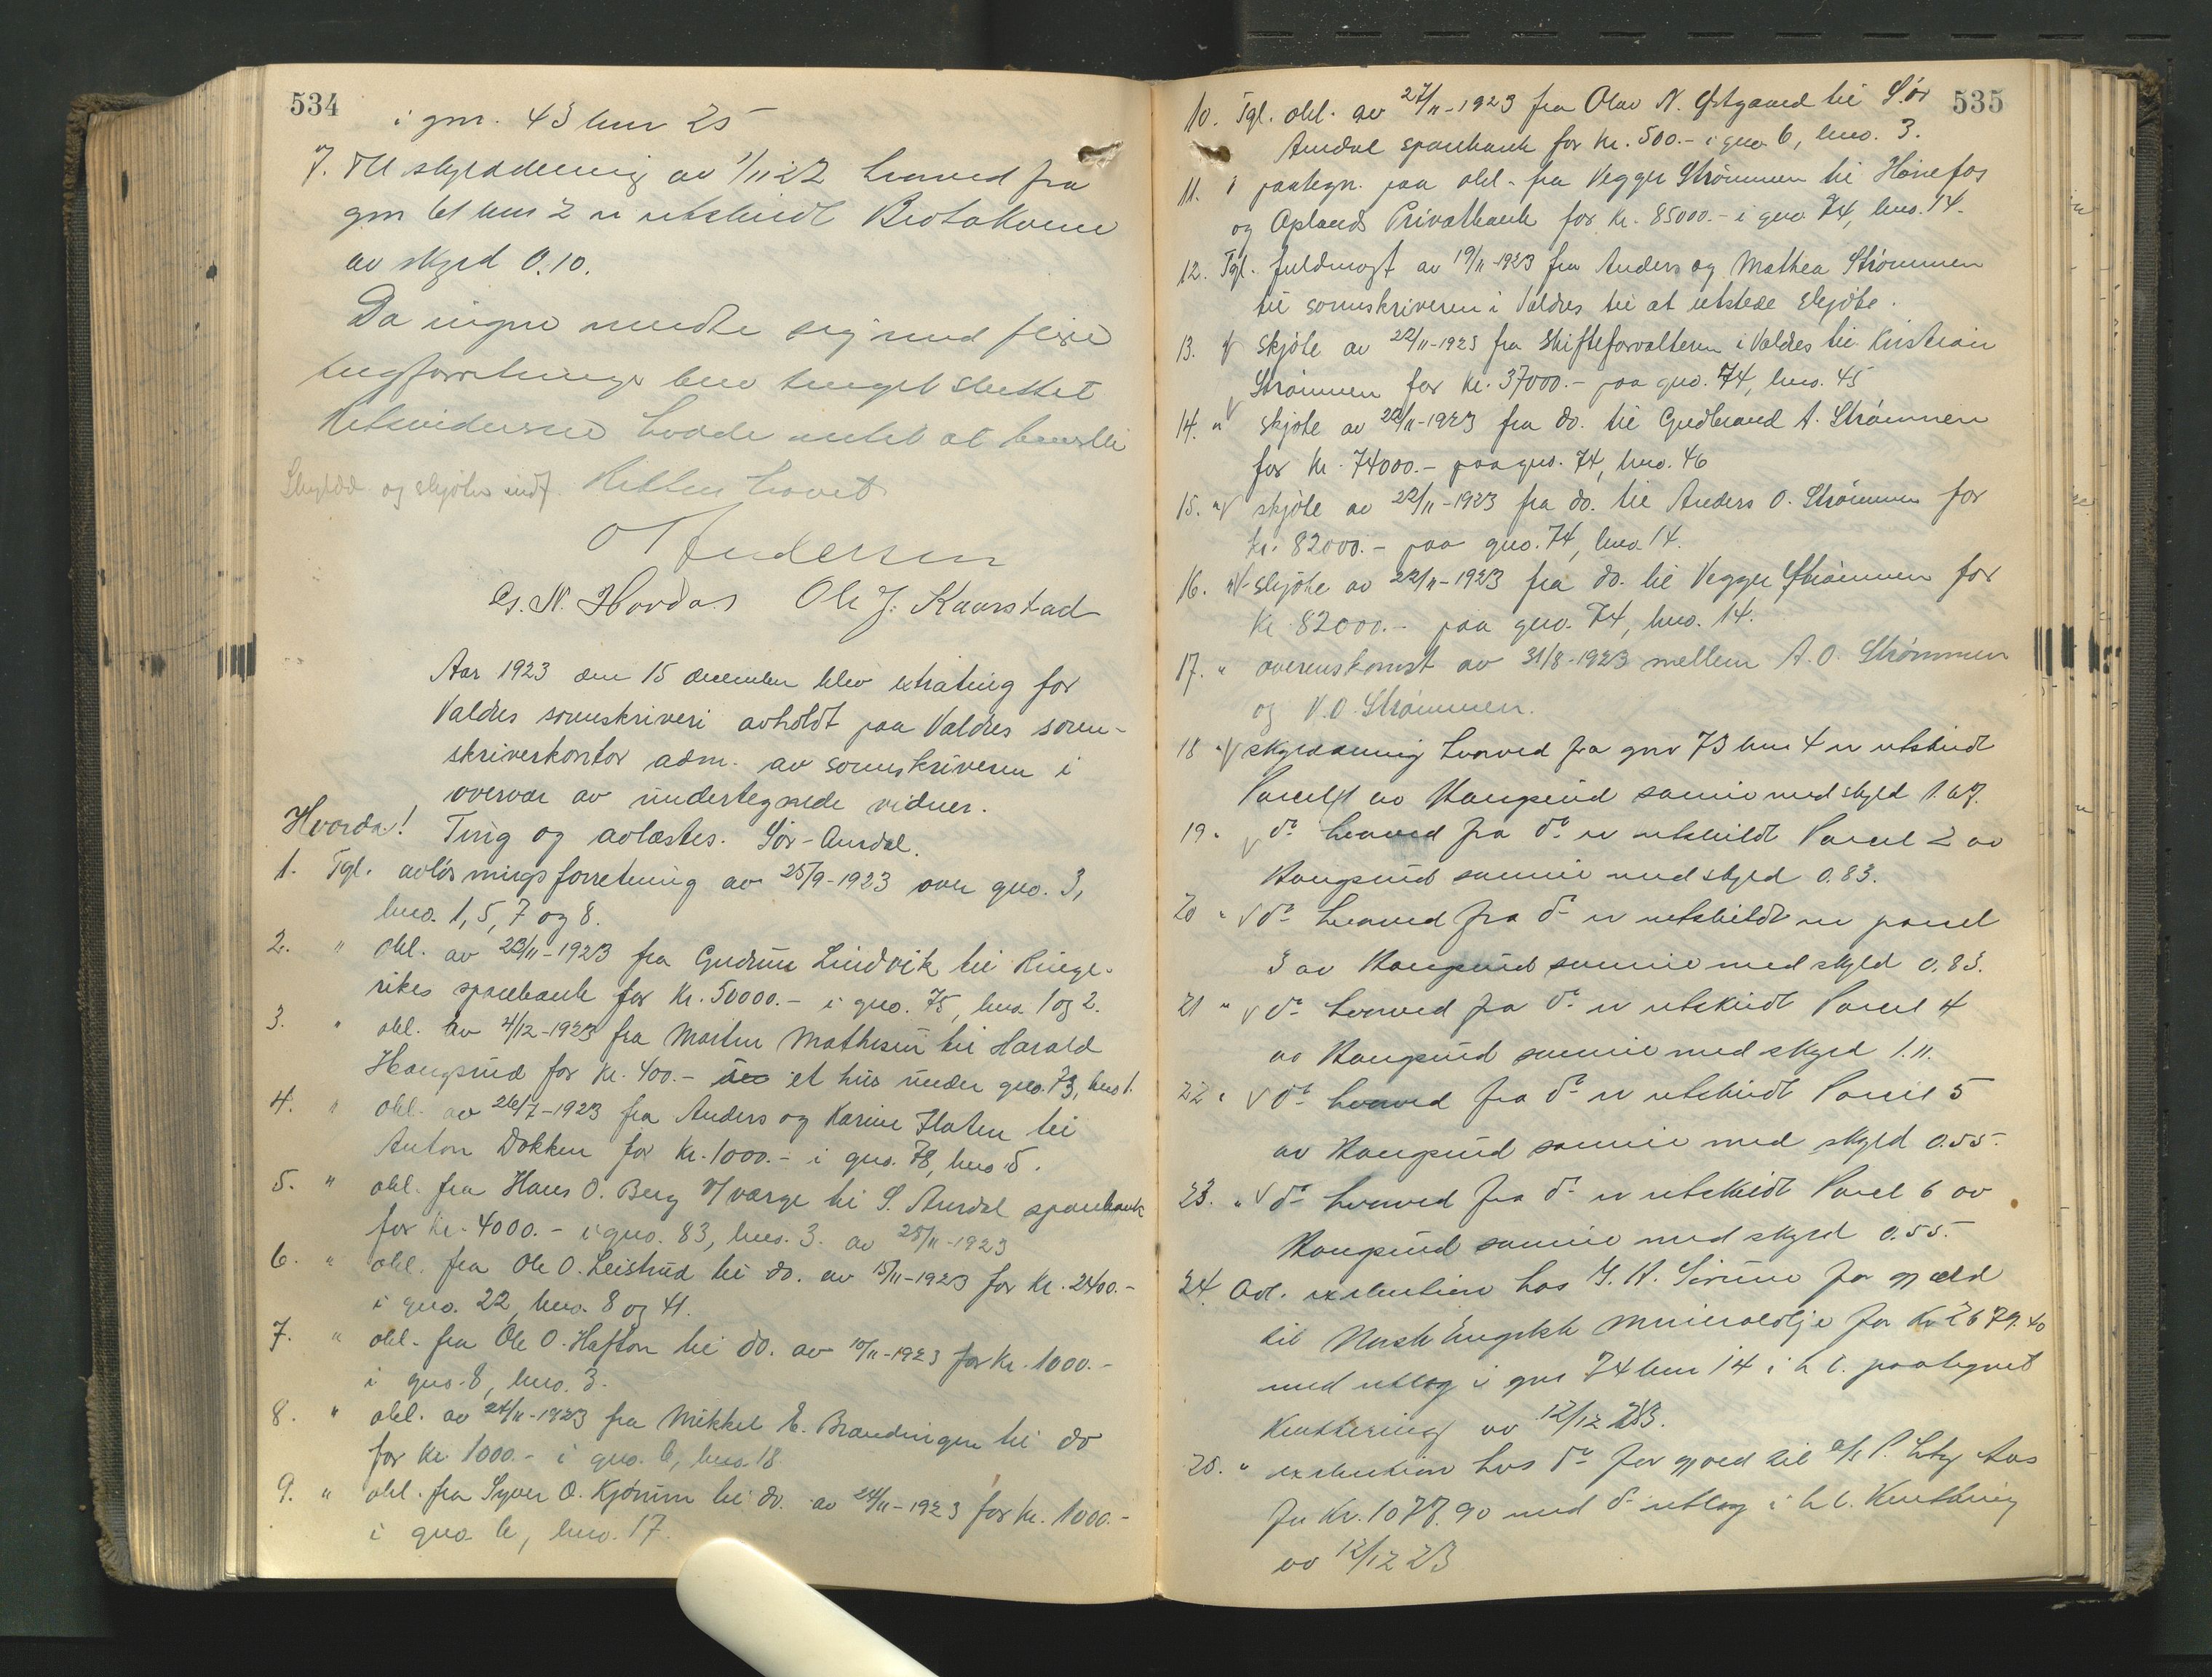 534
i gnr. 43 bnr 25
7. Tgl skylddeling av 1/11 22 hvorved fra
gnr 61 bnr 2 er utskildt Brotakvern
av skyld 0.10.
Da ingen meldte sig med flere
tingforretninger blev tinget sluttet
Retsvidnerne hadde intet at bemerke
Skyldd. og skjøter indf. Retten hævet
O T Andersen
G. N. Hovdas Ole J. Kaarstad
Aar 1923 den 15 december blev extrating for
Valdres sorenskriveri avholdt paa Valdres soren-
skriverkontor adm. av sorenskriveren i
overvær av undertegnede vidner.
Hvorda! Ting og avlæstes. Sør-Aurdal.
1. Tgl. avløsningsforretning av 25/9-1923 over gno. 3,
bno. 1, 5, 7 og 8.
2. " obl. av 23/11-1923 fra Gudrun Lindvik til Ringe-
rikes sparebank for Kr. 50000.- i gno. 75, bno. 1 og 2.
3. " obl. av 4/12-1923 fra Martin Mathisen til Harald
Haugsrud for Kr. 400.- i et hus under gno. 73, bno 1.
4. " obl. av 26/7-1923 fra Anders og Karine Flaten til
Anton Dokken for Kr. 1000.- i gno. 78, bno 5.
5. " obl. fra Hans O. Berg m/ værge til S. Aurdal sparebank
for Kr. 4000.- i gno. 83, bno. 3. av 25/11-1923
6. " obl. fra Ole O. Leistrud til do. av 15/11-1923 for Kr. 2400.-
i gno. 22, bno. 8 og 41.
7. " obl. fra Ole O. Hafton til do. av 10/11-1923 for Kr. 1000.-
i gno. 8, bno. 3.
8. " obl. av 24/11-1923 fra Mikkel E. Brændingen til do
for Kr. 1000.- i gno. 6, bno. 18
9. " obl. fra Syver O. Kjørum til do. av 24/11-1923 for Kr. 1000.-
i gno. 6, bno. 17.
535
10. Tgl. obl. av 27/11-1923 fra Olav N. Østgaard til Sør
Aurdal sparebank for Kr. 500.- i gno 6, bno. 3.
11. " paategn. paa obl. fra Vegger Strømmen til Hønefos
og Oplands Privatbank for Kr. 85000.- i gno. 74, bno. 14.
12. Tgl. fuldmagt av 19/11-1923 fra Anders og Mathea Strømmen
til sorenskriveren i Valdres til at utstede skjøte.
13. " skjøte av 22/11-1923 fra Skifteforvalteren i Valdres til Kristian
Strømmen for Kr. 37000.- paa gno. 74, bno. 45
14. " skjøte av 22/11-1923 fra do. til Gudbrand A. Strømmen
for Kr. 74000.- paa gno. 74, bno. 46
15. " skjøte av 22/11-1923 fra do. til Anders O. Strømmen for
Kr. 82000.- paa gno. 74, bno 14.
16. " skjøte av 22/11-1923 fra do. til Vegger Strømmen for
Kr. 82000.- paa gno. 74, bno. 14.
17. " overenskomst av 31/8-1923 mellem A. O. Strømmen
og V. O. Strømmen.
18 " skylddeling hvorved fra gnr 73 bnr 4 er utskildt
Parcel 1 av Haugsrud sameie med skyld 1.67.
19. " do hvorved fra do er utskildt Parcel 2 av
Haugsrud sameie med skyld 0.83.
20 " do hvorved fra do er utskildt er parcel
3 av Haugsrud sameie med skyld 0.83.
21 " do hvorved fra do er utskildt Parcel 4
av Haugsrud sameie med skyld 1.11.
22 " do hvorved fra do er utskildt Parcel 5
av Haugsrud sameie med skyld 0.55.
23. " do hvorved fra do er utskildt Parcel 6 av
Haugsrud sameie med skyld 0.55.
24. Avl. exekution hos for gjæld
til Norsk Engelsk Mineralolje for Kr 2679.40
med utlæg i gnr 74 bnr 14 i h t. paategnet
Kvittering av 12/12 23.
25. " exekution hos do for gjæld til a/s
for Kr. 1077.90 med do utlæg i h t. Kvittering
av 12/12 23